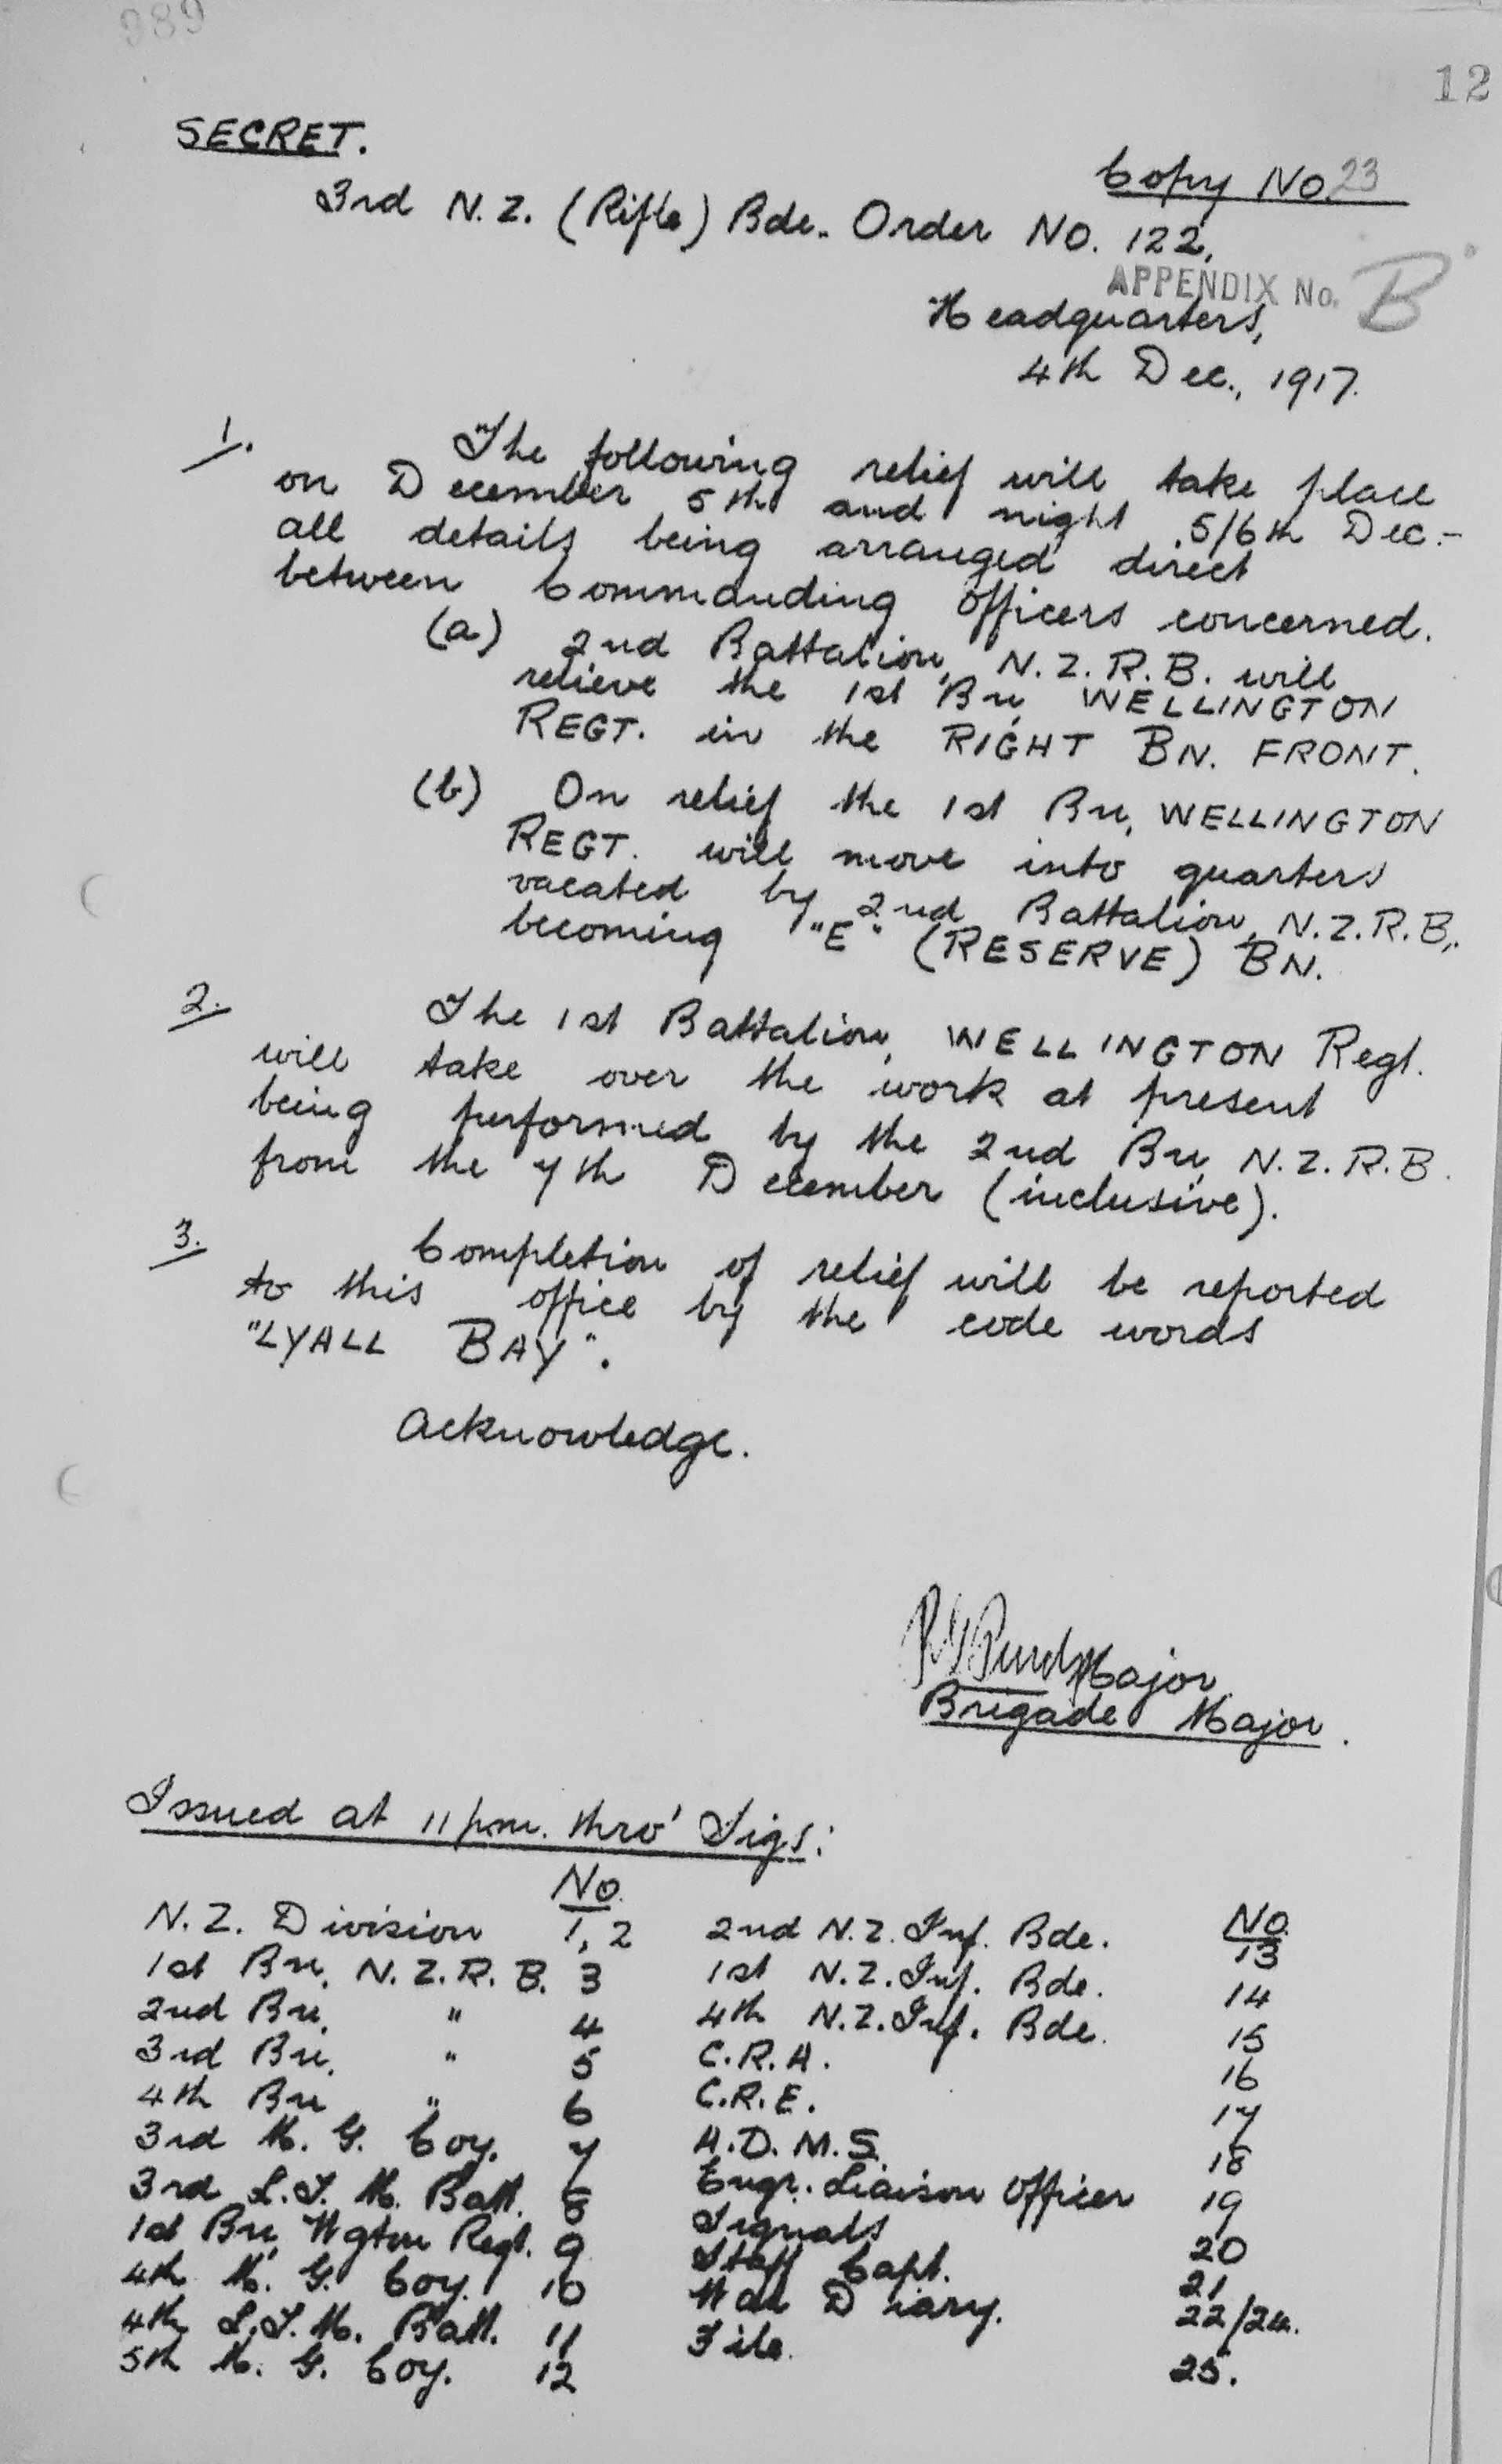 989
12
SECRET.
Copy No. 23
3rd N.Z. (Rifle) Bde. Order No. 122.
APPENDIX No. B
Headquarters,
4th Dec., 1917.
1. The following relief will take place
on December 5th and night 5/6th Dec.-
all details being arranged direct
between Commanding Officers concerned.
(a) 2nd Battalion, N.Z.R.B. will
relieve the 1st Bn, WELLINGTON
REGT. in the RIGHT BN. FRONT.
(b) On relief the 1st Bn, WELLINGTON
REGT. will move into quarters
vacated by 2nd Battalion, N.Z.R.B.,
becoming "E" (RESERVE) BN.
2. The 1st Battalion, WELLINGTON Regt.
will take over the work at present
being performed by the 2nd Bn, N.Z.R.B.
from the 7th December (inclusive).
3. Completion of relief will be reported
to this office by the code words
"LYALL BAY".
Acknowledge.
Major
Brigade Major.
Issued at 11 p.m. thro' Sigs:
No. No.
N.Z. Division 1, 2 2nd N.Z. Inf. Bde. 13
1st Bn. N.Z.R.B. 3 1st N.Z. Inf. Bde. 14
2nd Bn. " 4 4th N.Z. Inf. Bde. 15
3rd Bn. " 5 C.R.A. 16
4th Bn " 6 C.R.E. 17
3rd M.G. Coy. 7 A.D.M.S. 18
3rd L.T.M. Batt. 8 Engr. Liaison Officer 19
1st Bn, Wgtn Regt. 9 Signals 20
4th M.G. Coy. 10 Staff Capt. 21
4th L.T.M. Batt. 11 War Diary. 22/24.
5th M.G. Coy. 12 File. 25.